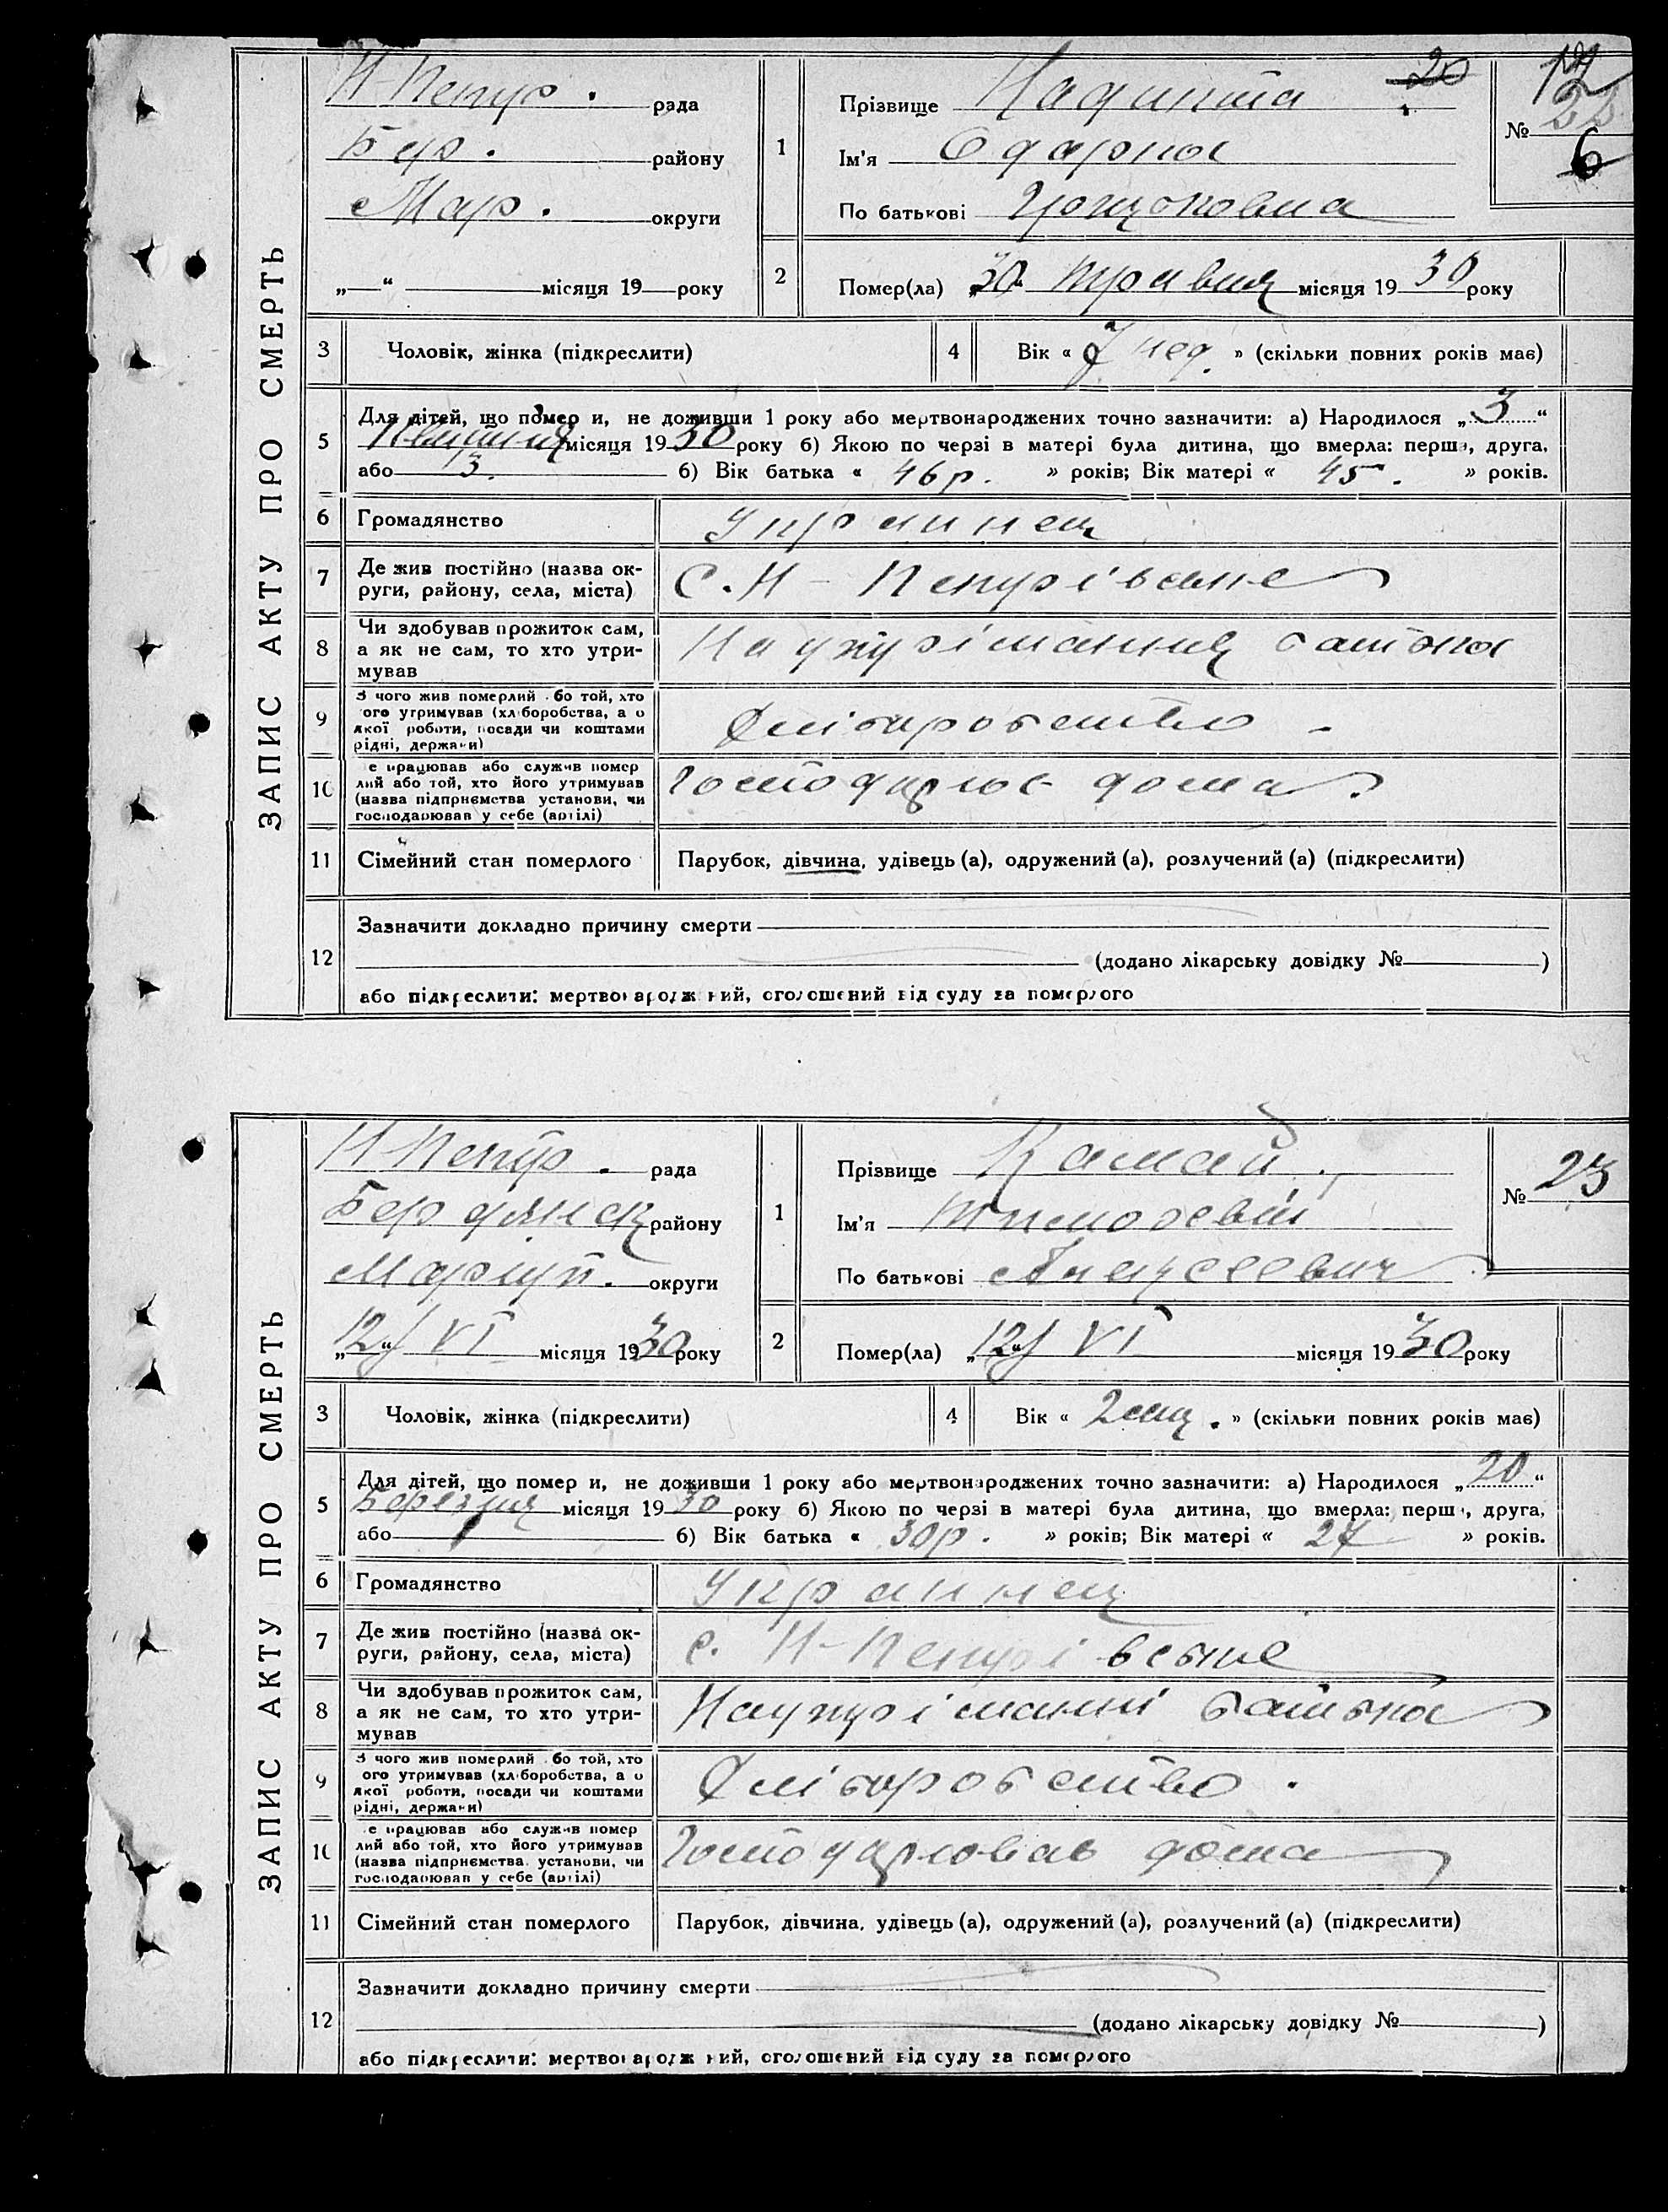 ЗАПИС АКТУ ПРО СМЕРТЬ
Н-Петр. рада
Бер. району
Мар. округи
„ “ місяця 19 року
1
Прізвище
20
Ім'я Одарка
По батькові
№ 12
6
2
Помер(ла) 30 травня місяця 1930 року
3
Чоловік, жінка (підкреслити)
4
Вік « 7 нед. » (скільки повних років має)
5
Для дітей, що помер и, не доживши 1 року або мертвонароджених точно зазначити: а) Народилося „3“
місяця 1930 року б) Якою по черзі в матері була дитина, що вмерла: перша, друга,
або 13. б) Вік батька « 46 р. » років; Вік матері « 45. » років.
6
Громадянство
Украинец
7
Де жив постійно (назва ок-
руги, району, села, міста)
С. Н-Петрівське
8
Чи здобував прожиток сам,
а як не сам, то хто утри-
мував
На утрімання батька
9
З чого жив померлий бо той, хто
ого утримував (хліборобства, а о
якої роботи, посади чи коштами
рідні, держави)
Хліборобство
10
е працював або служив помер
лий або той, хто його утримував
(назва підприємства установи, чи
господарював у себе (артілі)
Господарює дома.
11
Сімейний стан померлого
Парубок, дівчина, удівець (а), одружений (а), розлучений (а) (підкреслити)
12
Зазначити докладно причину смерти
(додано лікарську довідку № )
або підкреслити: мертвонароджений, оголошений від суду за померлого
ЗАПИС АКТУ ПРО СМЕРТЬ
Н-Петр. рада
Бердянск району
Маріуп. округи
„12“ VI місяця 1930 року
1
Прізвище Камай
Ім'я Тимофевій
По батькові Алексеевич
№ 23
2
Помер(ла) „12“ VI місяця 1930 року
3
Чоловік, жінка (підкреслити)
4
Вік « 2 мц. » (скільки повних років має)
5
Для дітей, що помер и, не доживши 1 року або мертвонароджених точно зазначити: а) Народилося „20“
Березня місяця 1930 року б) Якою по черзі в матері була дитина, що вмерла: перша, друга,
або б) Вік батька « 30 р. » років; Вік матері « 27 » років.
6
Громадянство
Украинец
7
Де жив постійно (назва ок-
руги, району, села, міста)
с. Н-Петрівське
8
Чи здобував прожиток сам,
а як не сам, то хто утри-
мував
На утріманні батька
9
З чого жив померлий бо той, хто
ого утримував (хліборобства, а о
якої роботи, посади чи коштами
рідні, держави)
Хліборобство.
10
е працював або служив помер
лий або той, хто його утримував
(назва підприємства установи, чи
господарював у себе (артілі)
Господарював дома
11
Сімейний стан померлого
Парубок, дівчина, удівець (а), одружений (а), розлучений (а) (підкреслити)
12
Зазначити докладно причину смерти
(додано лікарську довідку № )
або підкреслити: мертвонароджений, оголошений від суду за померлого